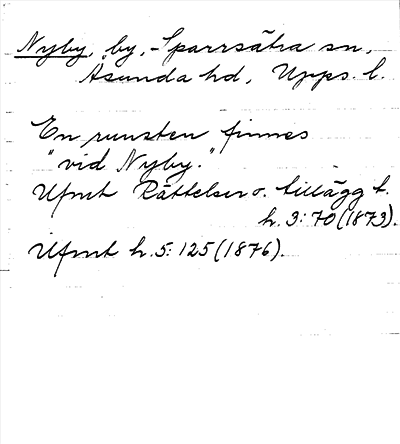 Nyby, by, Sparrsätra sn,
Åsunda hd, Upps. l.
En runsten finnes
"vid Nyby."
Ufmt Rättelser o. tillägg t.
h. 3: 70 (1873).
Ufmt h. 5: 125 (1876).